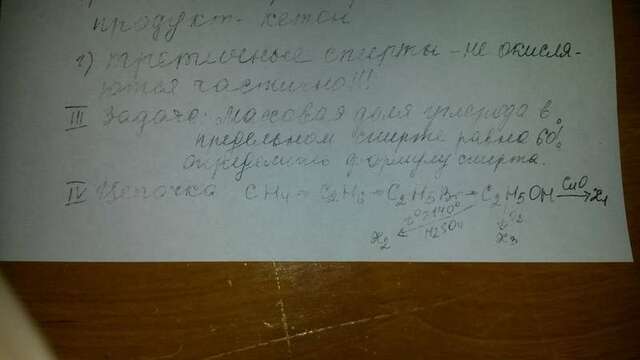 продукт - кетон
г) третичные спирты - не окисля-
ются частично!!!
III Задача: Массовая доля углерода в
предельном спирте равна 60%
определить формулу спирта.
IV Цепочка CH4 → C2H6 → C2H5Br → C2H5OH CuO→ X1
t°>140° O2
X2 H2SO4 X3